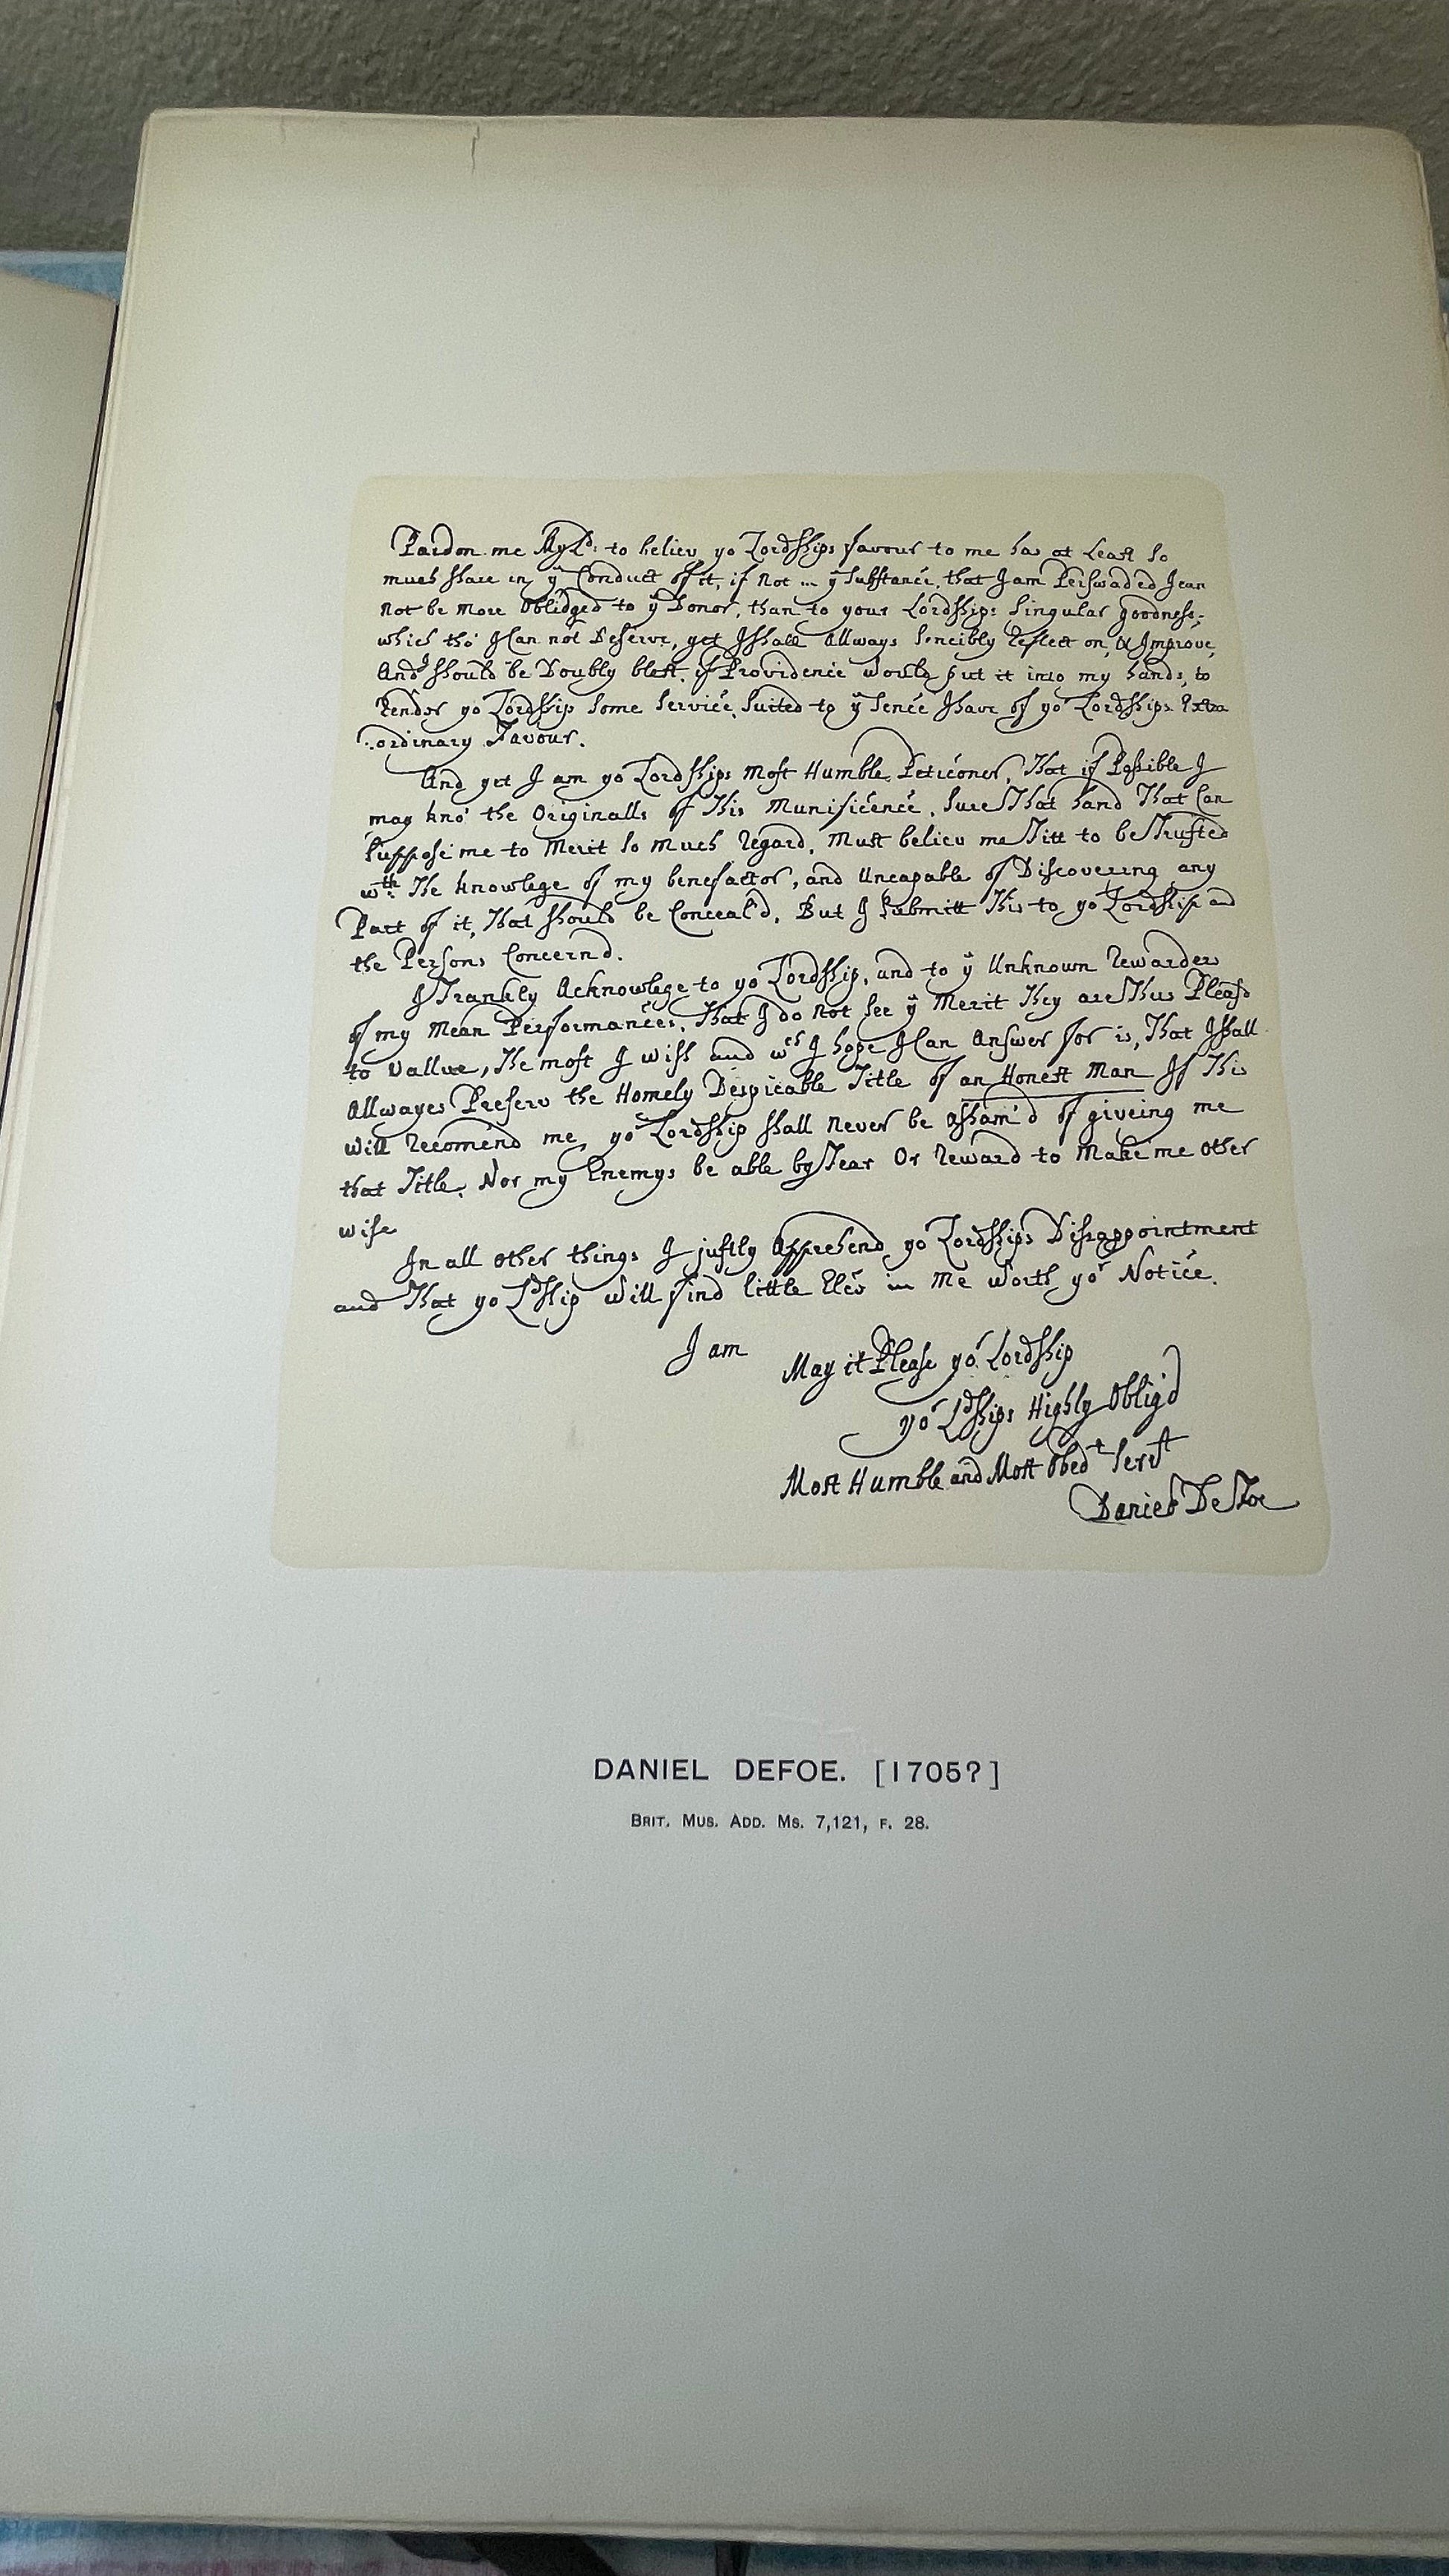 Pardon me My Ld: to believ yo Lordships favour to me has at Least So
much share in ye Conduct of it, if Not in ye Substance, that I am Perswaded I can
Not be More Oblidged to ye Donor, than to your Lordships Singular goodness,
which tho' I Can not Deserve, yet I shall Allways Sencibly Reflect on, & Improve,
And I should be Doubly blest, if Providence would put it into my hands, to
Render yor Lordship Some Service, Suited to ye Sence I have of yor Lordships Extra
ordinary Favour.
And yet I am yor Lordships Most Humble Peticoner, That if Possible I
may kno' the Originalls of This Munificence, Sure That hand That Can
Suppose me to Merit So Much Regard, Must believ me Fitt to be Trusted
wth The knowlege of my benefactor, and Uncapable of Discovering any
Part of it, That should be Conceal'd. But I Submitt This to yo Lordship and
the Persons Concern'd.
I Frankly Acknowlege to yo Lordship, and to ye Unknown Rewarders
of my Mean Performances, That I do Not See ye Merit They are Thus Pleas'd
to Vallue, The most I wish and wch I hope I Can Answer for is, That I shall
Allwayes Preserv the Homely Despicable Title of an Honest Man If This
will recomend me, yor Lordship shall Never be asham'd of giveing me
that Title, Nor my Enemys be able by Fear Or Reward to Make me Other
wise
In all Other things I justly Apprehend yor Lordships Disappointment
and That yo Ldship will find little Else in Me Worth yor Notice.
I am
May it Please yor Lordship
yor Ldships Highly Oblig'd
Most Humble and Most Obedt Servt
Daniel De Foe
DANIEL DEFOE. [1705?]
BRIT. MUS. ADD. MS. 7,121, F. 28.